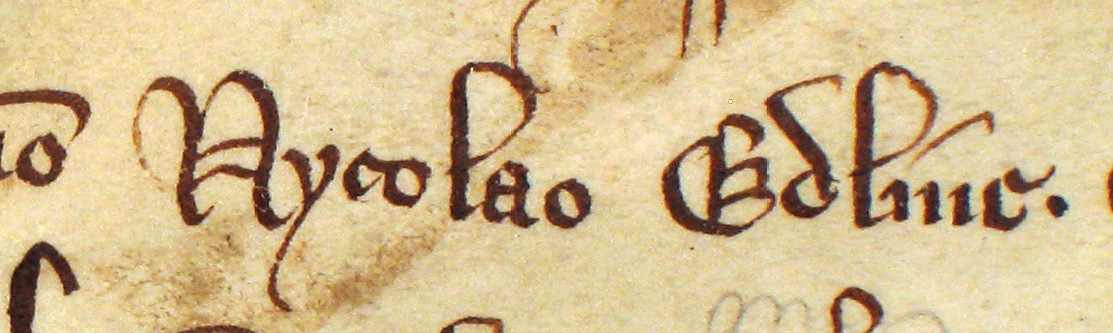 Nycolao Edlinc.